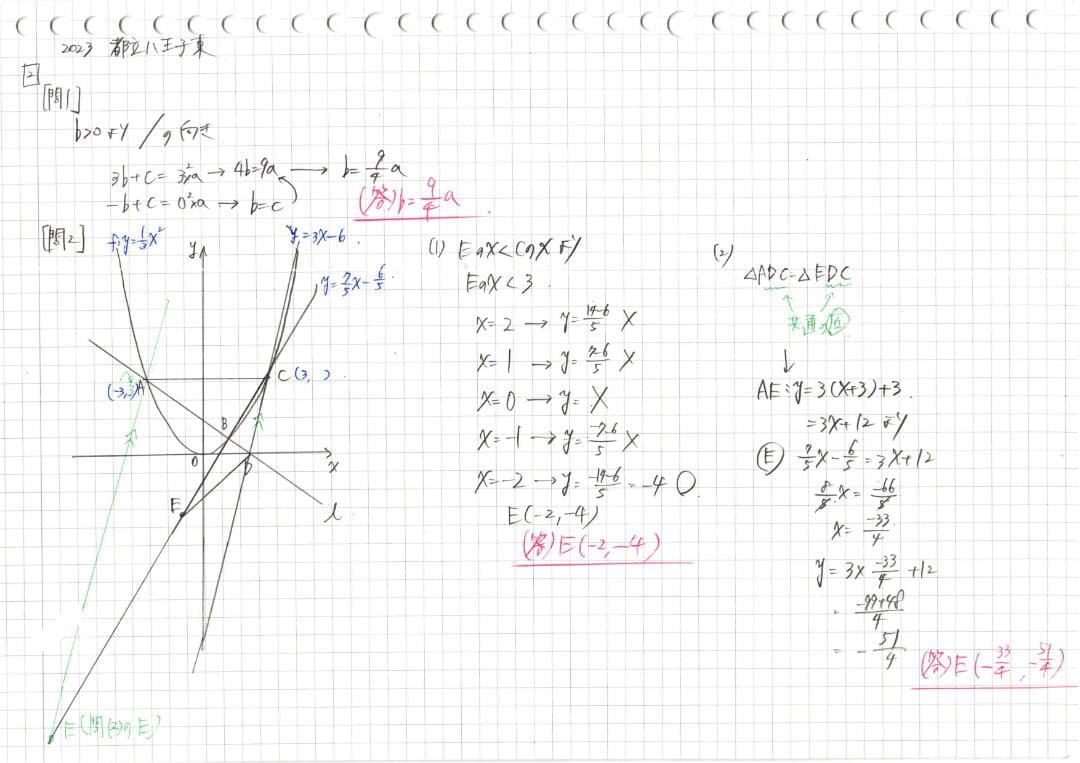 2023 都立八王子東
2
[問1]
b>0より /の向き
3b+c=3²×a→4b=9a→b=9/4a
-b+c=0²×a→b=c
(答)b=9/4a
[問2]
f:y=1/3x²
y
y=3x-6
y=7/5x-6/5
(-3,3)A
C(3, )
B
O
D
x
E
l
E(問(2)のE)
(1) Eのx<Cのxより
Eのx<3
x=2→y=14-6/5 X
x=1→y=7-6/5 X
x=0→y= X
x=-1→y=-7-6/5 X
x=-2→y=-14-6/5=-4 O
E(-2,-4)
(答)E(-2,-4)
(2)
△ADC=△EDC
共通→底
↓
AE:y=3(x+3)+3
=3x+12より
E 7/5x-6/5=3x+12
8/5x=-66/5
x=-33/4
y=3×-33/4+12
=-99+48/4
=-51/4
(答)E(-33/4,-51/4)